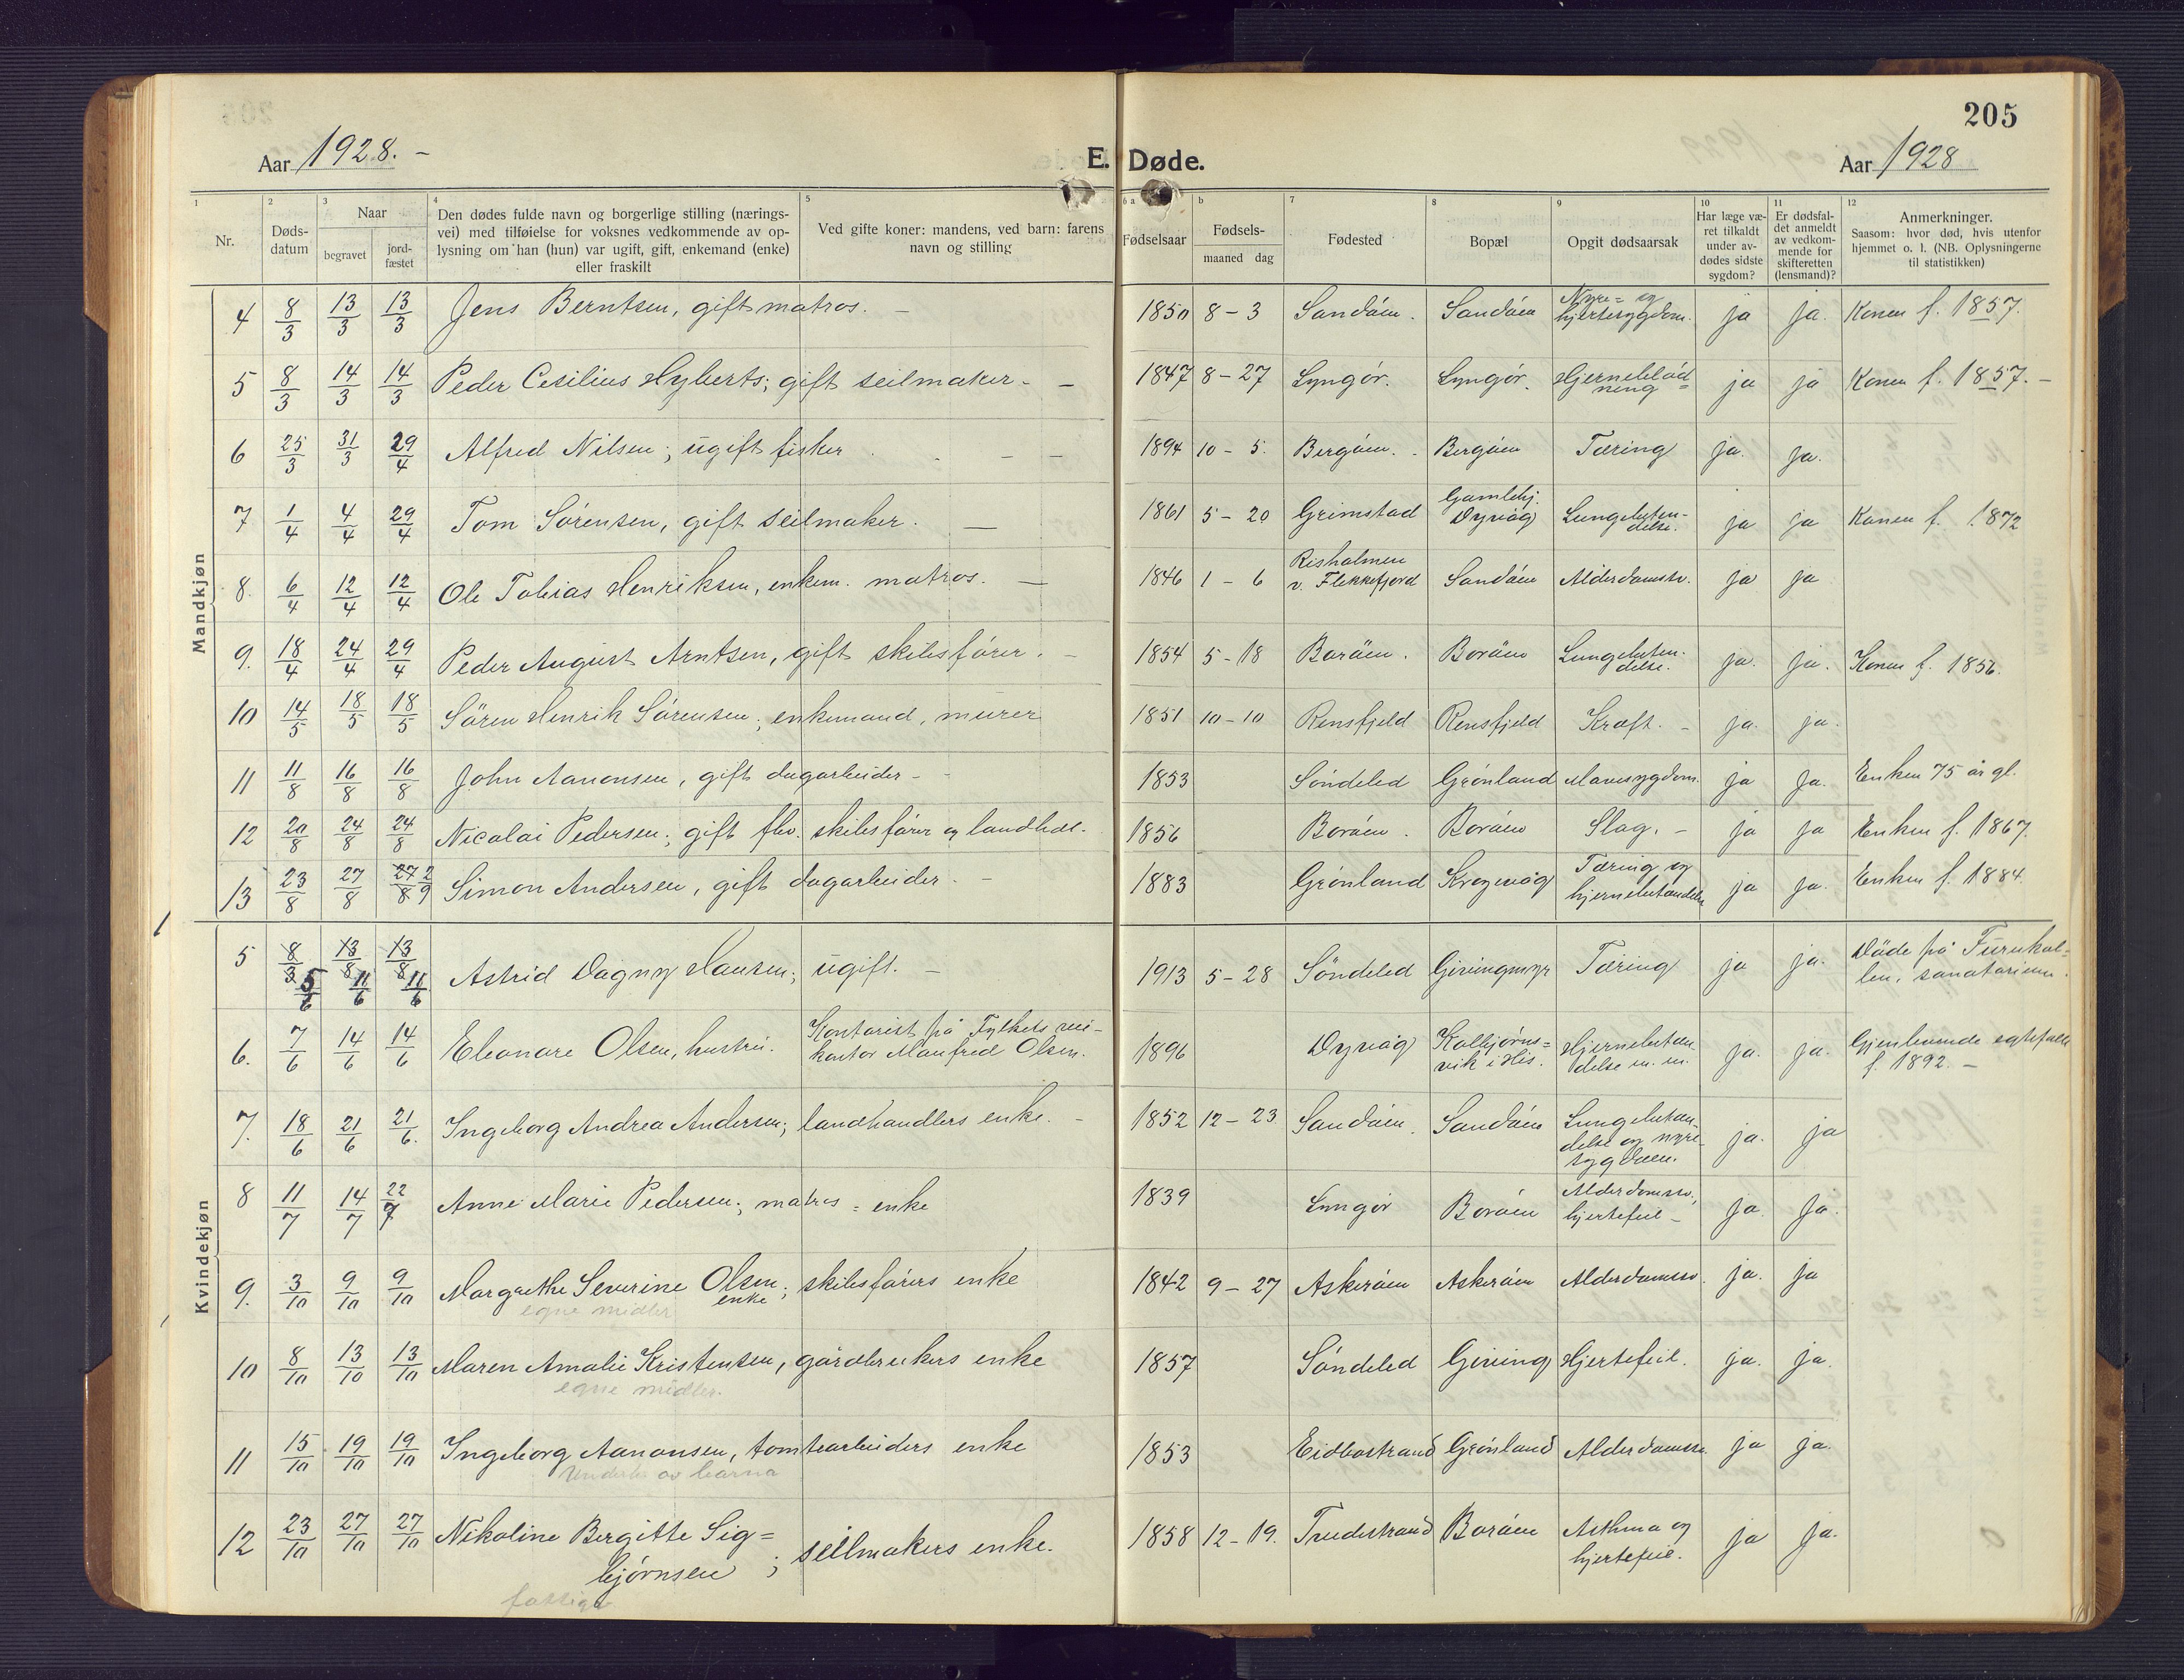 205
Aar 1928. –
E. Døde.
Aar 1928
1 Nr.
2 Døds-datum
3 Naar begravet jord-fæstet
4 Den dødes fulde navn og borgerlige stilling (nærings-vei) med tilføielse for voksnes vedkommende av op-lysning om han (hun) var ugift, gift, enkemand (enke) eller fraskilt
5 Ved gifte koner: mandens, ved barn: farens navn og stilling
6 a Fødselsaar
b Fødsels- maaned dag
7 Fødested
8 Bopæl
9 Opgit dødsaarsak
10 Har læge væ-ret tilkaldt under av-dødes sidste sygdom?
11 Er dødsfal-det anmeldt av vedkom-mende for skifteretten (lensmand)?
12 Anmerkninger. Saasom: hvor død, hvis utenfor hjemmet o. l. (NB. Oplysningerne til statistikken)
Mandkjøn
4 8/3 13/3 13/3 Jens Berntsen, gift matros. – 1850 8 – 3 Sandøen. Sandøen Nyre= og hjertesygdom. ja ja. Konen f. 1857.
5 8/3 14/3 14/3 Peder Cesilius Hyberts; gift seilmaker. – 1847 8 – 27 Lyngør. Lyngør. Hjerneblød=ning ja ja Konen f. 1857. –
6 25/3 31/3 29/4 Alfred Nilsen; ugift fisker – – 1894 10 – 5. Bergøen. Bergøen Tæring ja. ja.
7 1/4 4/4 29/4 Tom Sørensen, gift seilmaker. – 1861 5 – 20 Grimstad Gamlehj. Dyvåg Lungebeten-delse. ja ja Konen f. 1872
8. 6/4 12/4 12/4 Ole Tobias Henriksen, enkem. matros. – 1846 1 – 6 Risholmen v. Flekkefjord Sandøen Alderdomssv. ja ja
9. 18/4 24/4 29/4 Peder August Arntsen, gift skibsfører. – 1854 5 – 18 Borøen. Borøen Lungebeten-delse. ja. ja. Konen f. 1856.
10 14/5 18/5 18/5 Søren Henrik Sørensen; enkemand, murer 1851 10 – 10 Rensfjeld Rensfjeld Kræft. – ja. ja.
11 11/8 16/8 16/8 John Aanonsen, gift dagarbeider – 1853 Søndeled Grønland Mavesygdom. ja ja. Enken 75 år gl.
12 20/8 24/8 24/8 Nicolai Pedersen; gift fhv. skibsfører og landhdl. 1856 Borøen. Borøen Slag. – ja ja Enken f. 1867.
13 23/8 27/8 27/8 2/9 Simon Andersen, gift dagarbeider. – 1883 Grønland Krogvåg Tæring og hjernebetændelse ja ja. Enken f. 1884.
Kvindekjøn
5 8/3 5/6 13/8 11/6 13/8 11/6 Astrid Dagny Hansen; ugift. – 1913 5 – 28 Søndeled Givingmyr Tæring ja ja. Døde på Furukol=len, sanatorium.
6. 7/6 14/6 14/6 Eleonore Olsen, hustru. Kontorist på Fylkets vei-kontor Manfred Olsen. 1896 Dyvåg Kolbjørns=vik i His. Hjernebetæn delse m. m. ja. ja. Gjenlevende egtefælle f. 1892. –
7. 18/6 21/6 21/6. Ingeborg Andrea Andersen; landhandlers enke. – 1852 12 – 23 Sandøen. Sandøen Lungebetæn-delse og nyre-sygdom. ja. ja
8 11/7 14/7 22/7 Anne Marie Pedersen; matros = enke 1839 Lyngør Borøen Alderdomssv., hjertefeil – ja. ja.
9. 3/10 9/10 9/10 Margrethe Severine Olsen; skibsførers enke 1842 9 – 27 Askerøen Askerøen Alderdomssv. ja. ja
enke
egne midler
10 8/10 13/10 13/10 Maren Amalie Kristensen, gårdbrukers enke 1857 Søndeled Giving Hjertefeil. ja. ja.
egne midler.
11 15/10 19/10 19/10 Ingeborg Aanonsen, tomtearbeiders enke 1853 Eidbostrand Grønland Alderdomssv. ja ja.
Underh. av barna
12 23/10 27/10 27/10 Nikoline Bergitte Sig=bjørnsen; seilmakers enke. 1858 12 – 19. Trudestrand Borøen Asthma og hjertefeil. ja ja.
fattig